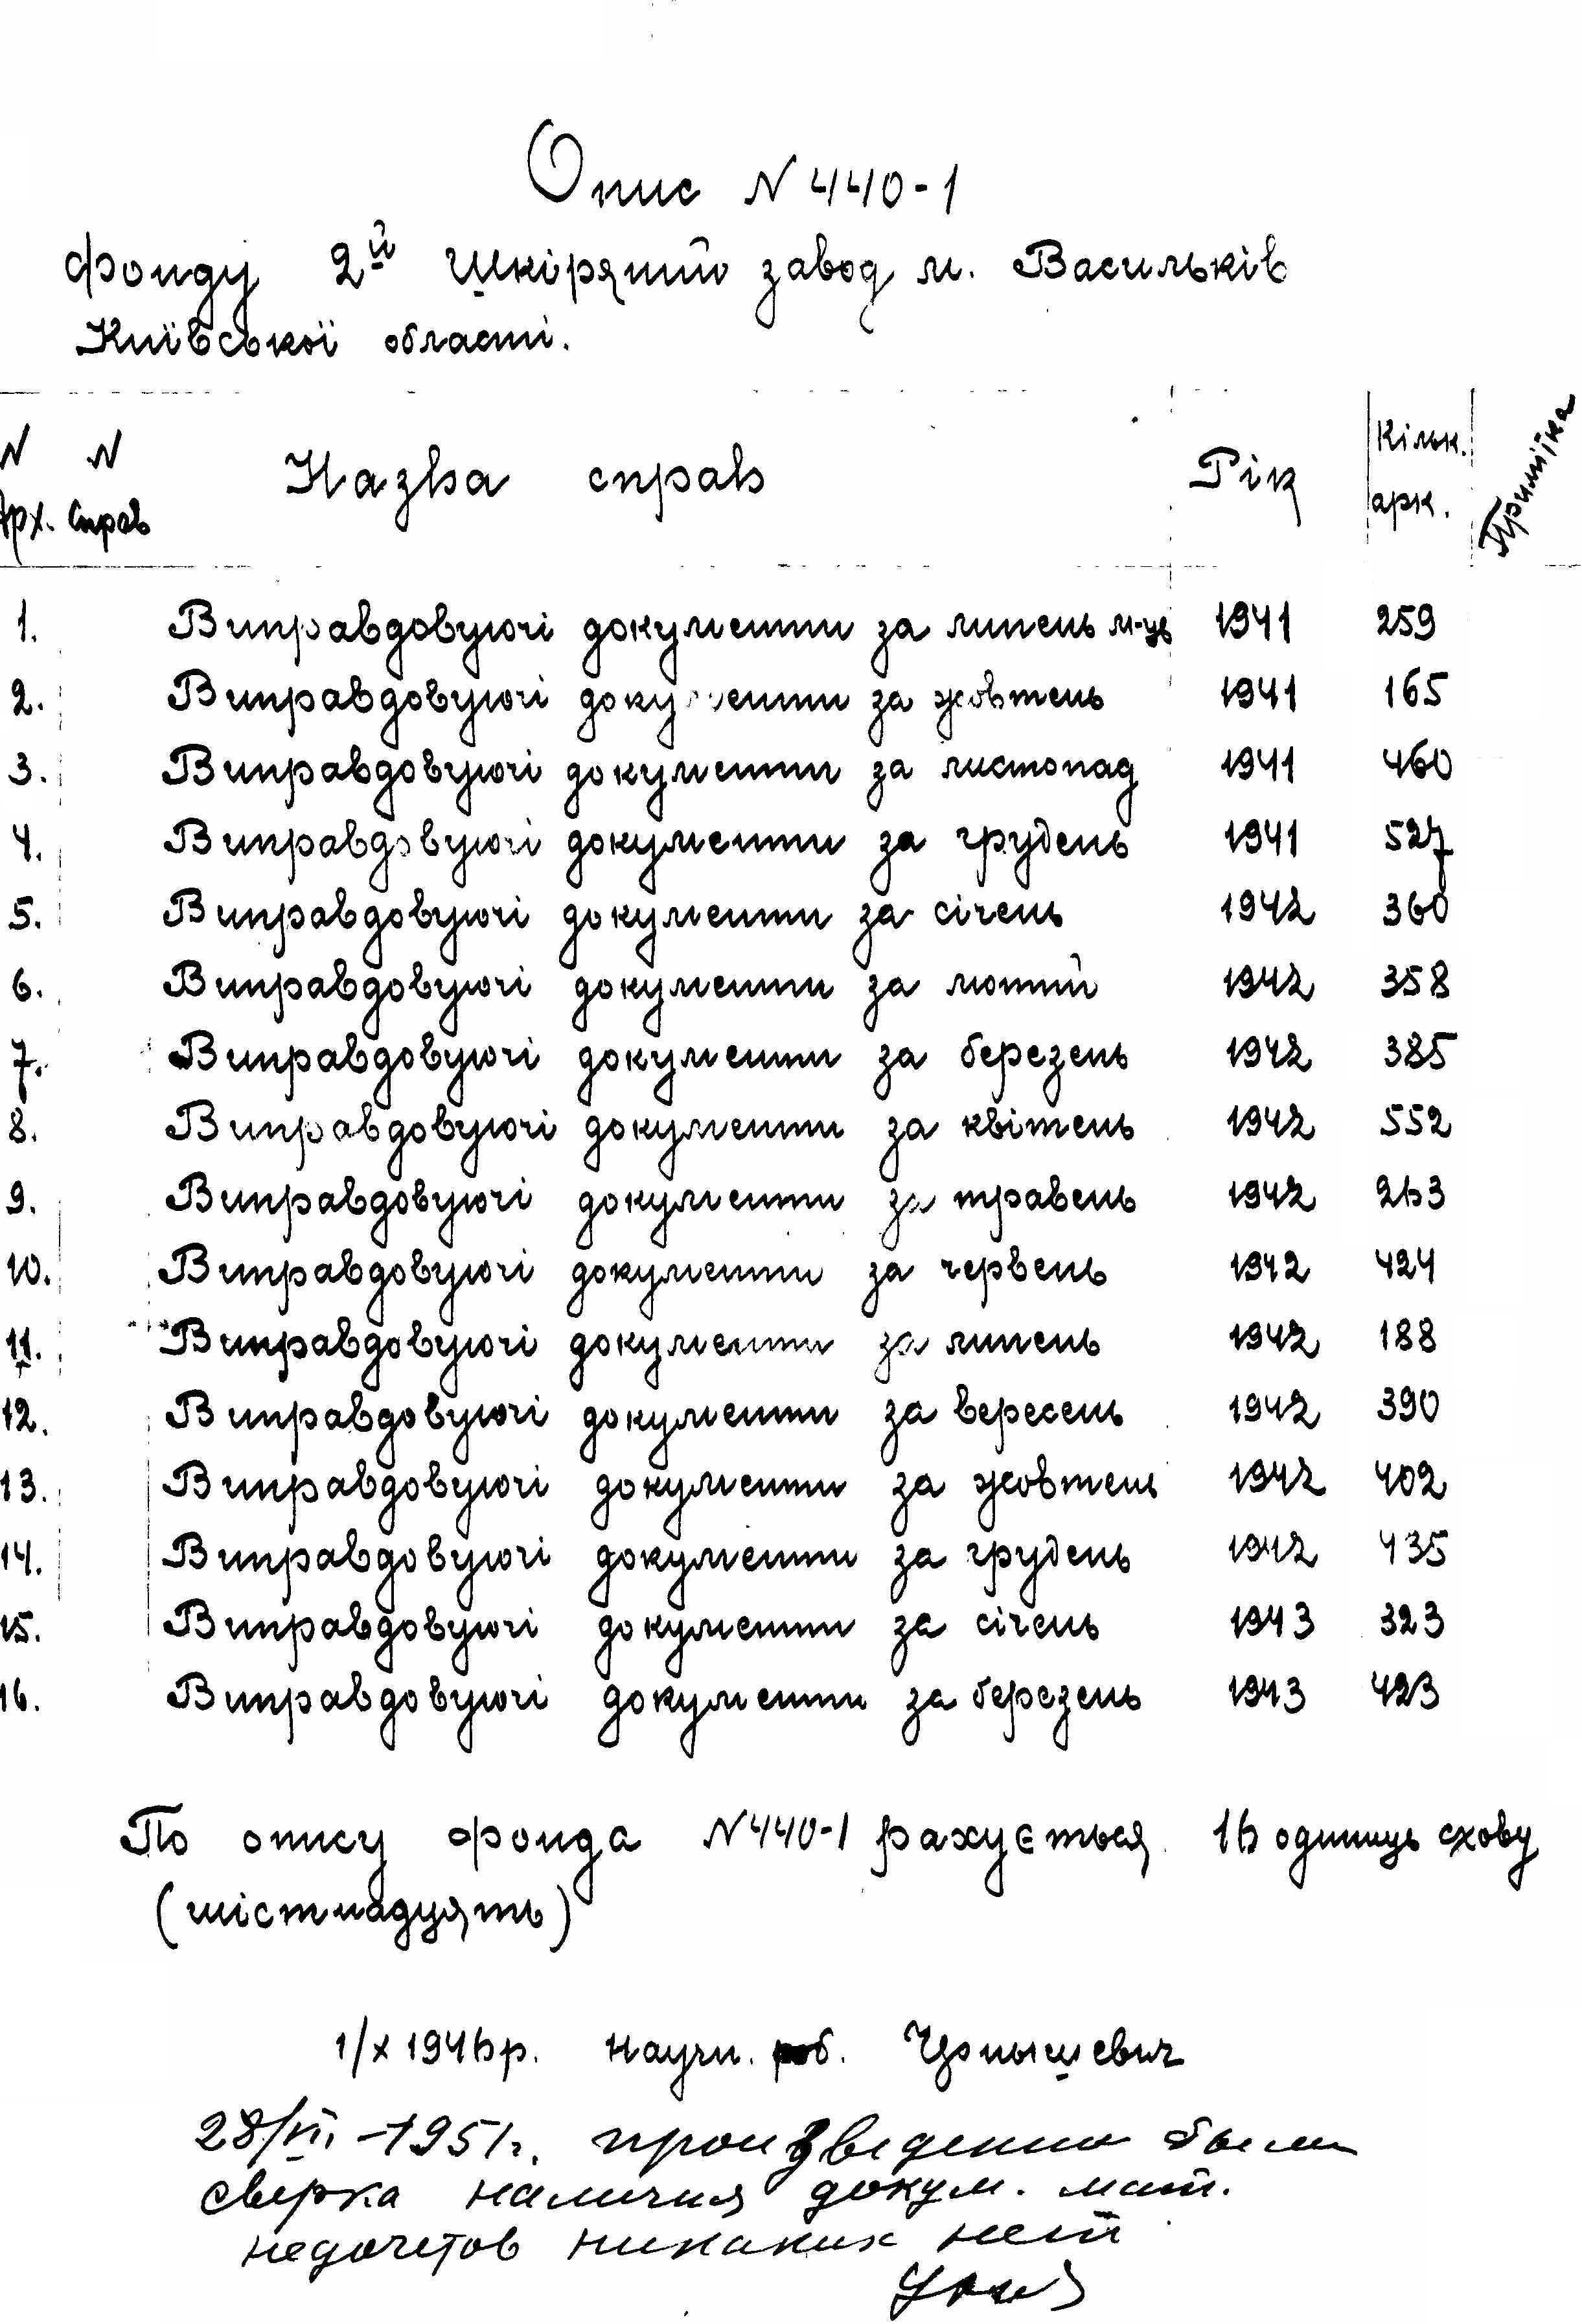 Опис N 440-1
фонду 2й Шкіряний завод м. Васильків
Київської області.
N N Назва справ Рік Кільк. Примітка
Арх. справ арк.
1. Виправдовуючі документи за липень м-ць 1941 259
2. Виправдовуючі документи за жовтень 1941 165
3. Виправдовуючі документи за листопад 1941 460
4. Виправдовуючі документи за грудень 1941 527
5. Виправдовуючі документи за січень 1942 360
6. Виправдовуючі документи за лютий 1942 358
7. Виправдовуючі документи за березень 1942 385
8. Виправдовуючі документи за квітень 1942 552
9. Виправдовуючі документи за травень 1942 263
10. Виправдовуючі документи за червень 1942 424
11. Виправдовуючі документи за липень 1942 188
12. Виправдовуючі документи за вересень 1942 390
13. Виправдовуючі документи за жовтень 1942 402
14. Виправдовуючі документи за грудень 1942 435
15. Виправдовуючі документи за січень 1943 323
16. Виправдовуючі документи за березень 1943 423
По опису фонда N 440-1 рахується 16 одиниць схову
(шістнадцять)
1/X 1946 р. Научн. роб.
28/VII -1951г. произведенна была
сверка наличия докум. мат.
недочетов никаких нет